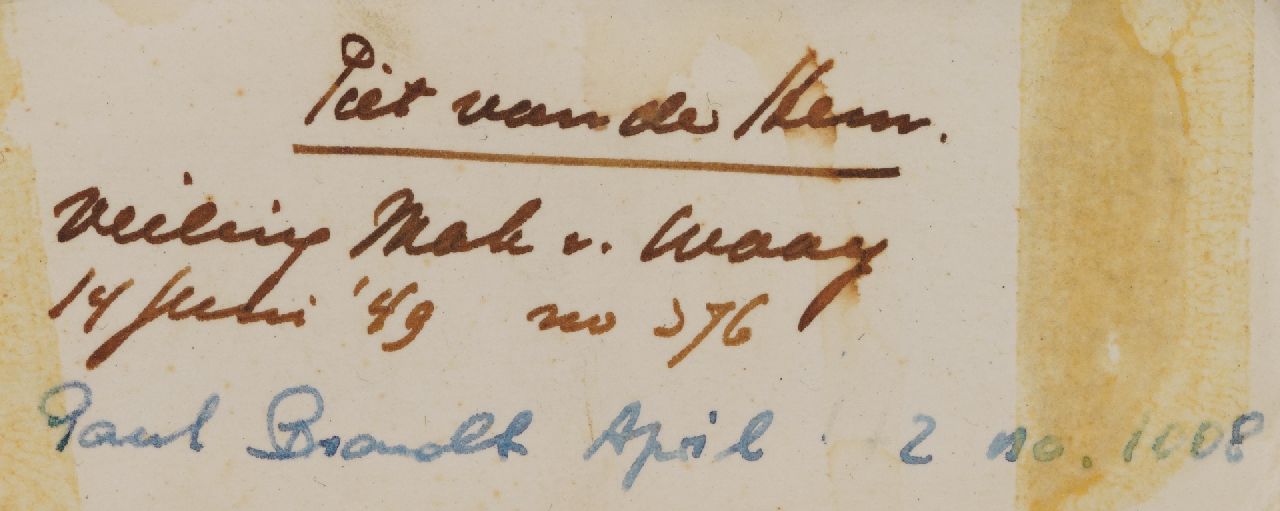 Piet van de Hem.
Veiling Mak v. Waay
14 Juni '49 no 376
Paul Brandt April 2 no. 1008